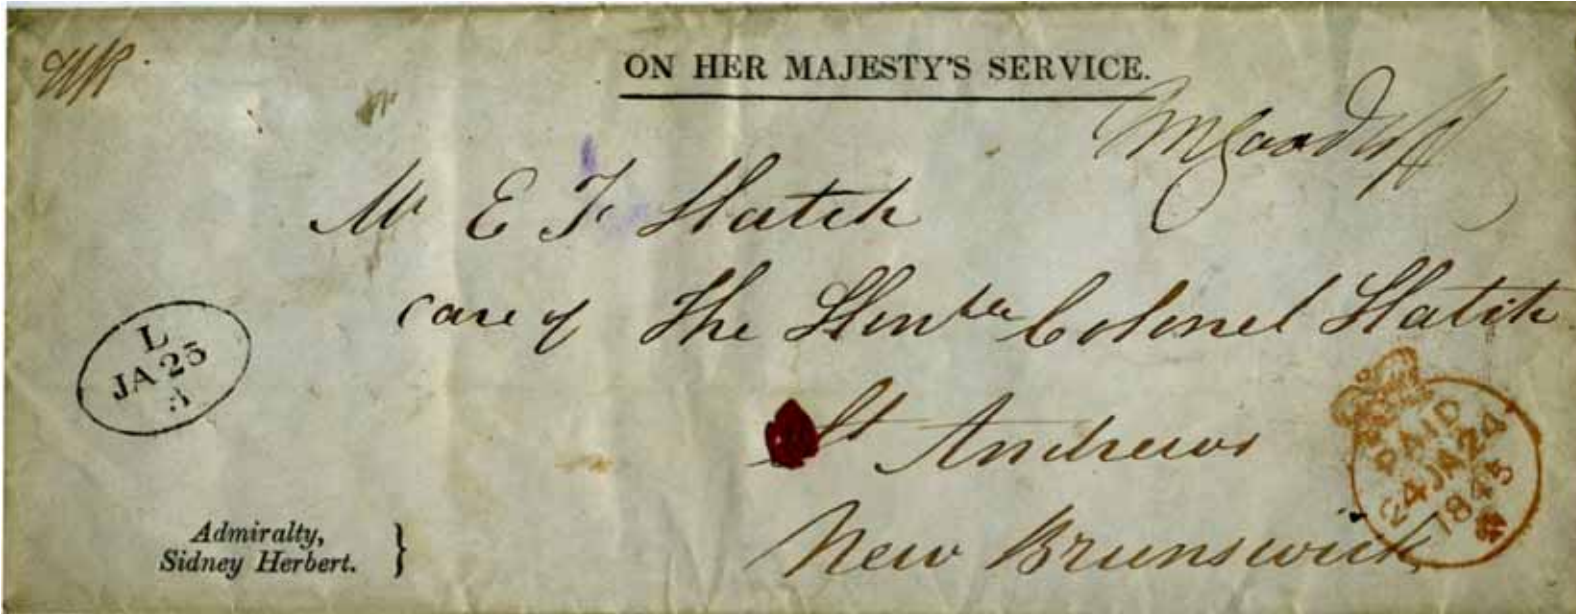 ON HER MAJESTY'S SERVICE.
Mr E F Hatch
care of The Honble Colonel Hatch
St Andrews
New Brunswick
L
JA 25
PAID
24 JA 24
1845
Admiralty,
Sidney Herbert.